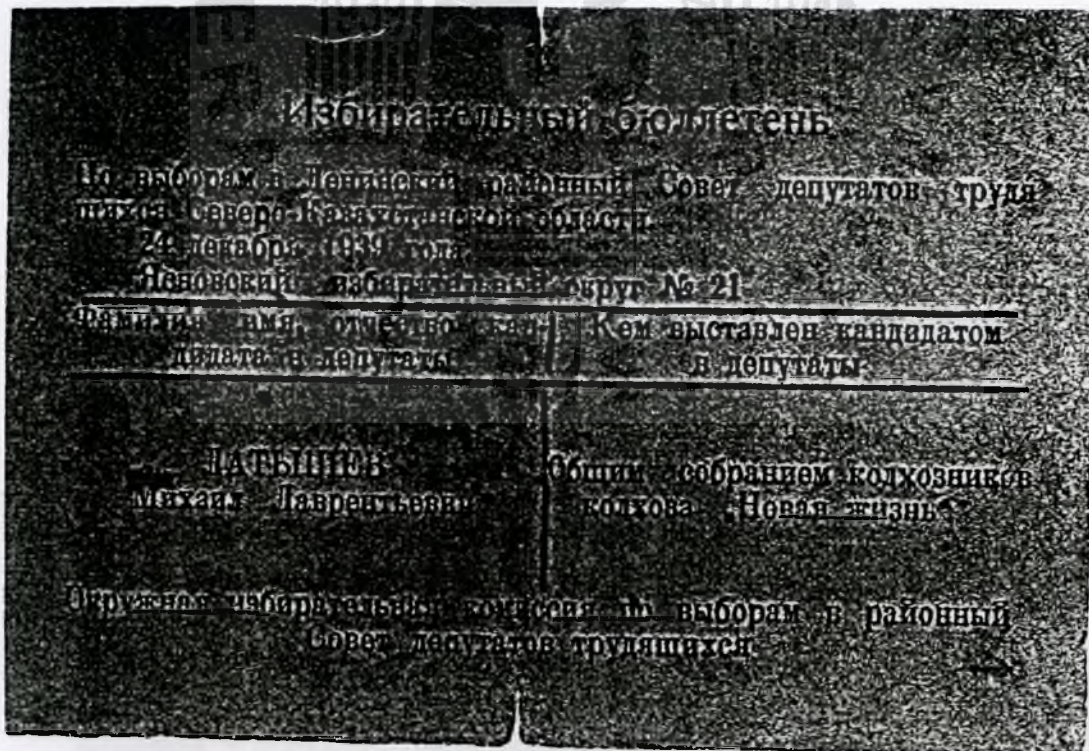 Избирательный бюллетень
По выборам в Ленинский районный Совет депутатов трудя
щихся Северо-Казахстанской области.
24 декабря 1939 года.
Ясновский избирательный округ № 21
Фамилия, имя, отчество кан-
дидата в депутаты
Кем выставлен кандидатом
в депутаты
ЛАТЫШЕВ
Михаил Лаврентьевич
Общим собранием колхозников
колхоза „Новая жизнь"
Окружная избирательная комиссия по выборам в районный
Совет депутатов трудящихся.